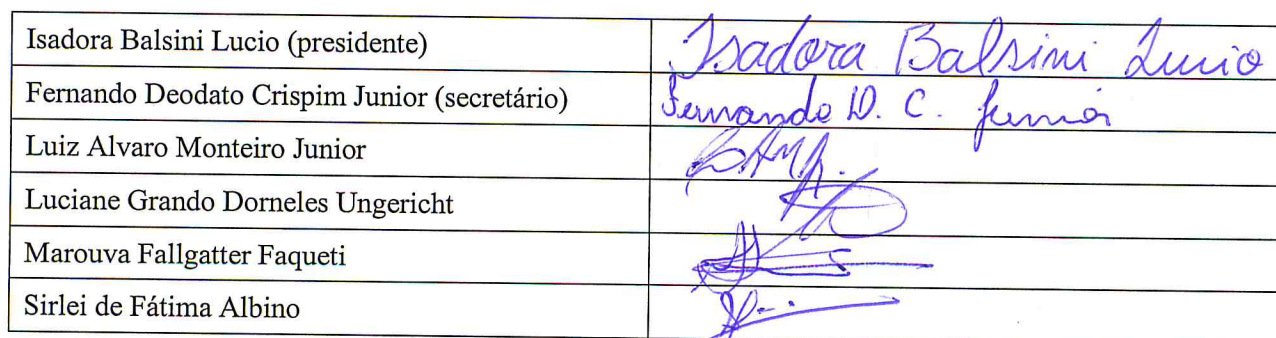 Isadora Balsini Lucio (presidente) Isadora Balsini Lucio
Fernando Deodato Crispim Junior (secretário) Fernando D. C. Junior
Luiz Alvaro Monteiro Junior
Luciane Grando Dorneles Ungericht
Marouva Fallgatter Faqueti
Sirlei de Fátima Albino